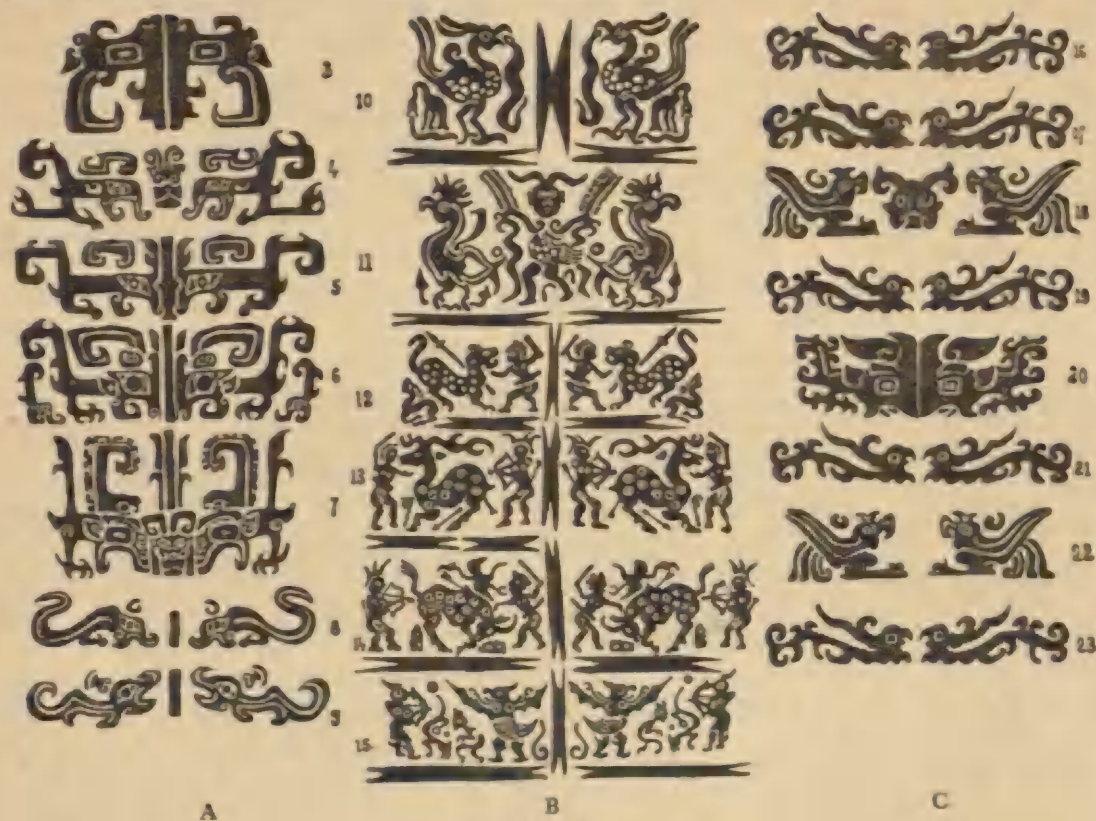 3
4
5
6
7
8
9
A
10
11
12
13
14
15
B
16
17
18
19
20
21
22
23
C